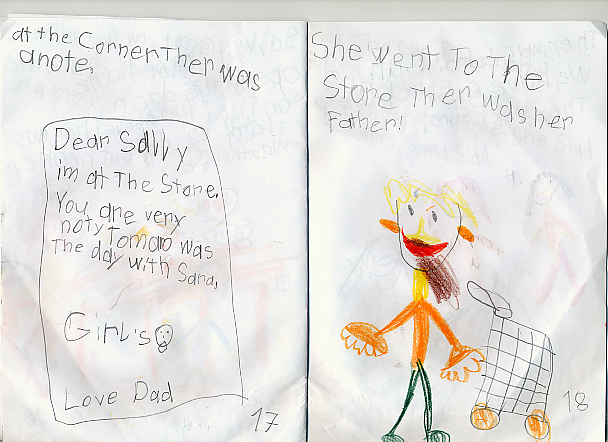 at the Corner Ther was
a note.
Dear Sally
im at The Store.
You are very
noty Tomaro was
The day with Sara,
Girl's
Love Dad
17
She went To The
Store Ther was her
Father!
18